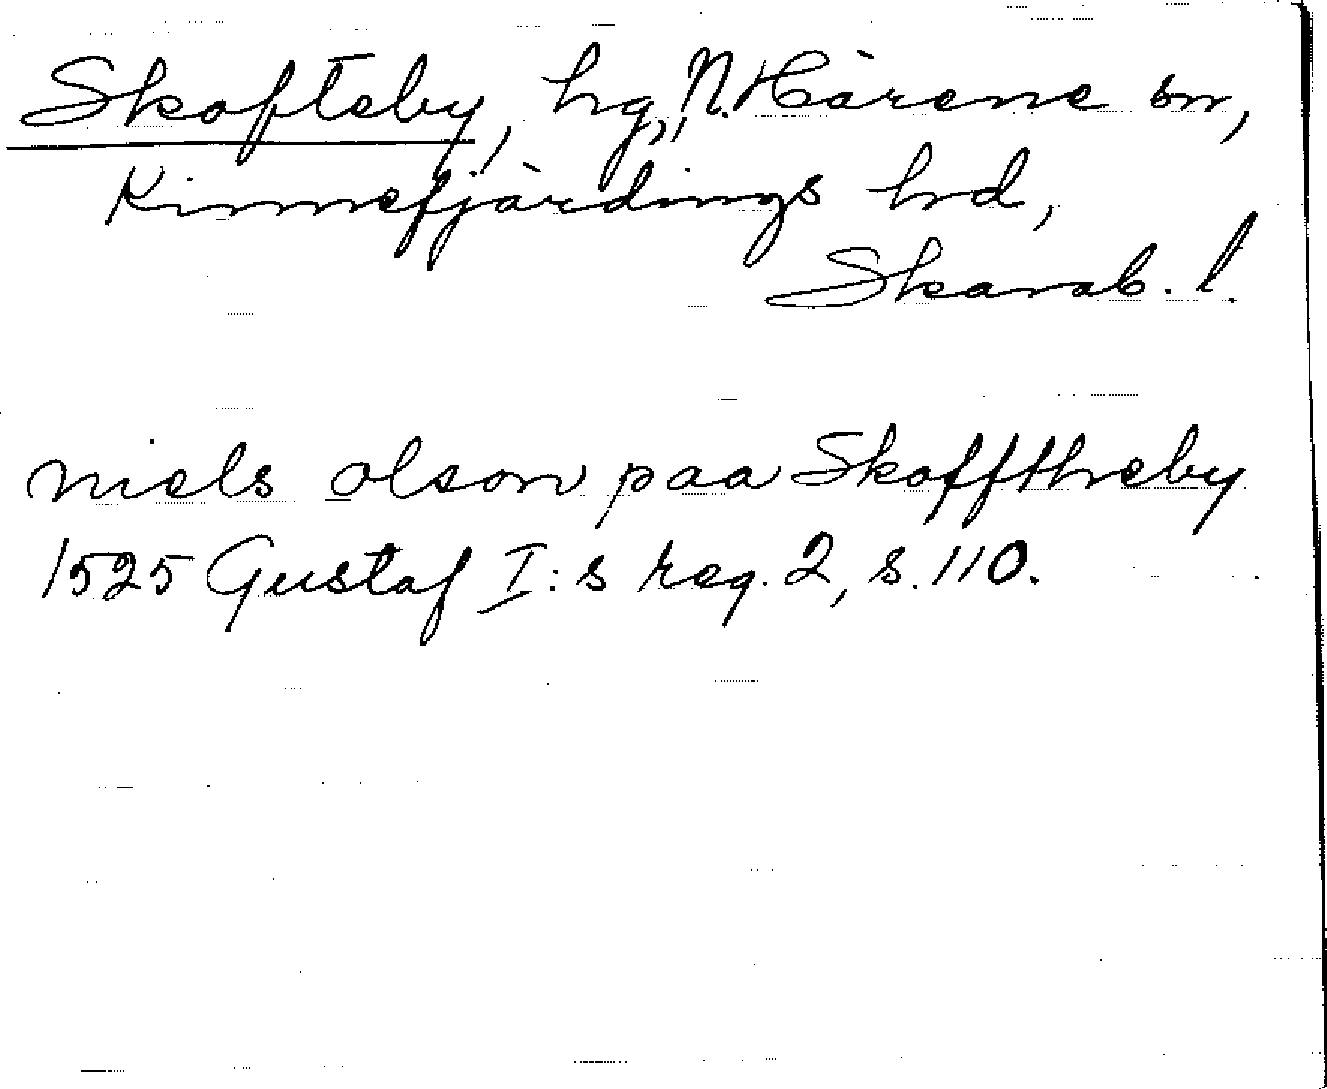 Skofteby, hg, N. Härene sn,
Kinnefjärdings hd,
Skarab. l.
niels olson paa Skoffthreby
1525 Gustaf I:s reg. 2, s. 110.